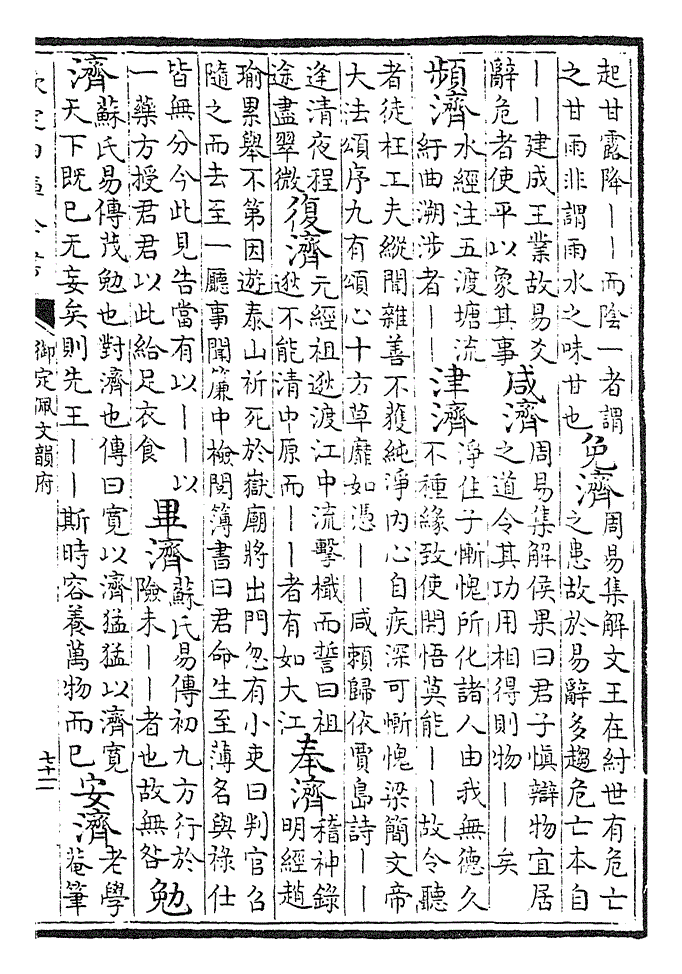 起甘露降丨丨而陰一者謂
之甘雨非謂雨水之味甘也
免濟
周易集解文王在紂世有危亡
之患故於易辭多趨危亡本自
丨丨建成王業故易爻
辭危者使平以象其事
咸濟
周易集解侯果曰君子慎辯物宜居
之道令其功用相得則物丨丨矣
頻濟
水經注五渡塘流
紆曲溯涉者丨丨
津濟
淨住子慚愧所化諸人由我無德久
不種緣致使開悟莫能丨丨故令聽
者徒枉工夫縱聞雜善不獲純淨内心自疾深可慚愧梁簡文帝
大法頌序九有頌心十方草靡如憑丨丨咸賴歸依賈島詩丨丨
逢清夜程
途盡翠微
復濟
元經祖逖渡江中流擊檝而誓曰祖
逖不能清中原而丨丨者有如大江
奉濟
稽神錄
明經趙
瑜累舉不第因遊泰山祈死於嶽廟將出門忽有小吏曰判官召
隨之而去至一廳事聞簾中檢閱簿書曰君命生至薄名與祿仕
皆無分今此見告當有以丨丨以
一藥方授君君以此給足衣食
畢濟
蘇氏易傳初九方行於
險未丨丨者也故無咎
勉
濟
蘇氏易傳茂勉也對濟也傳曰寛以濟猛猛以濟寛
天下既已无妄矣則先王丨丨斯時容養萬物而已
安濟
老學
菴筆
欽定四庫全書
御定佩文韻府
七十二